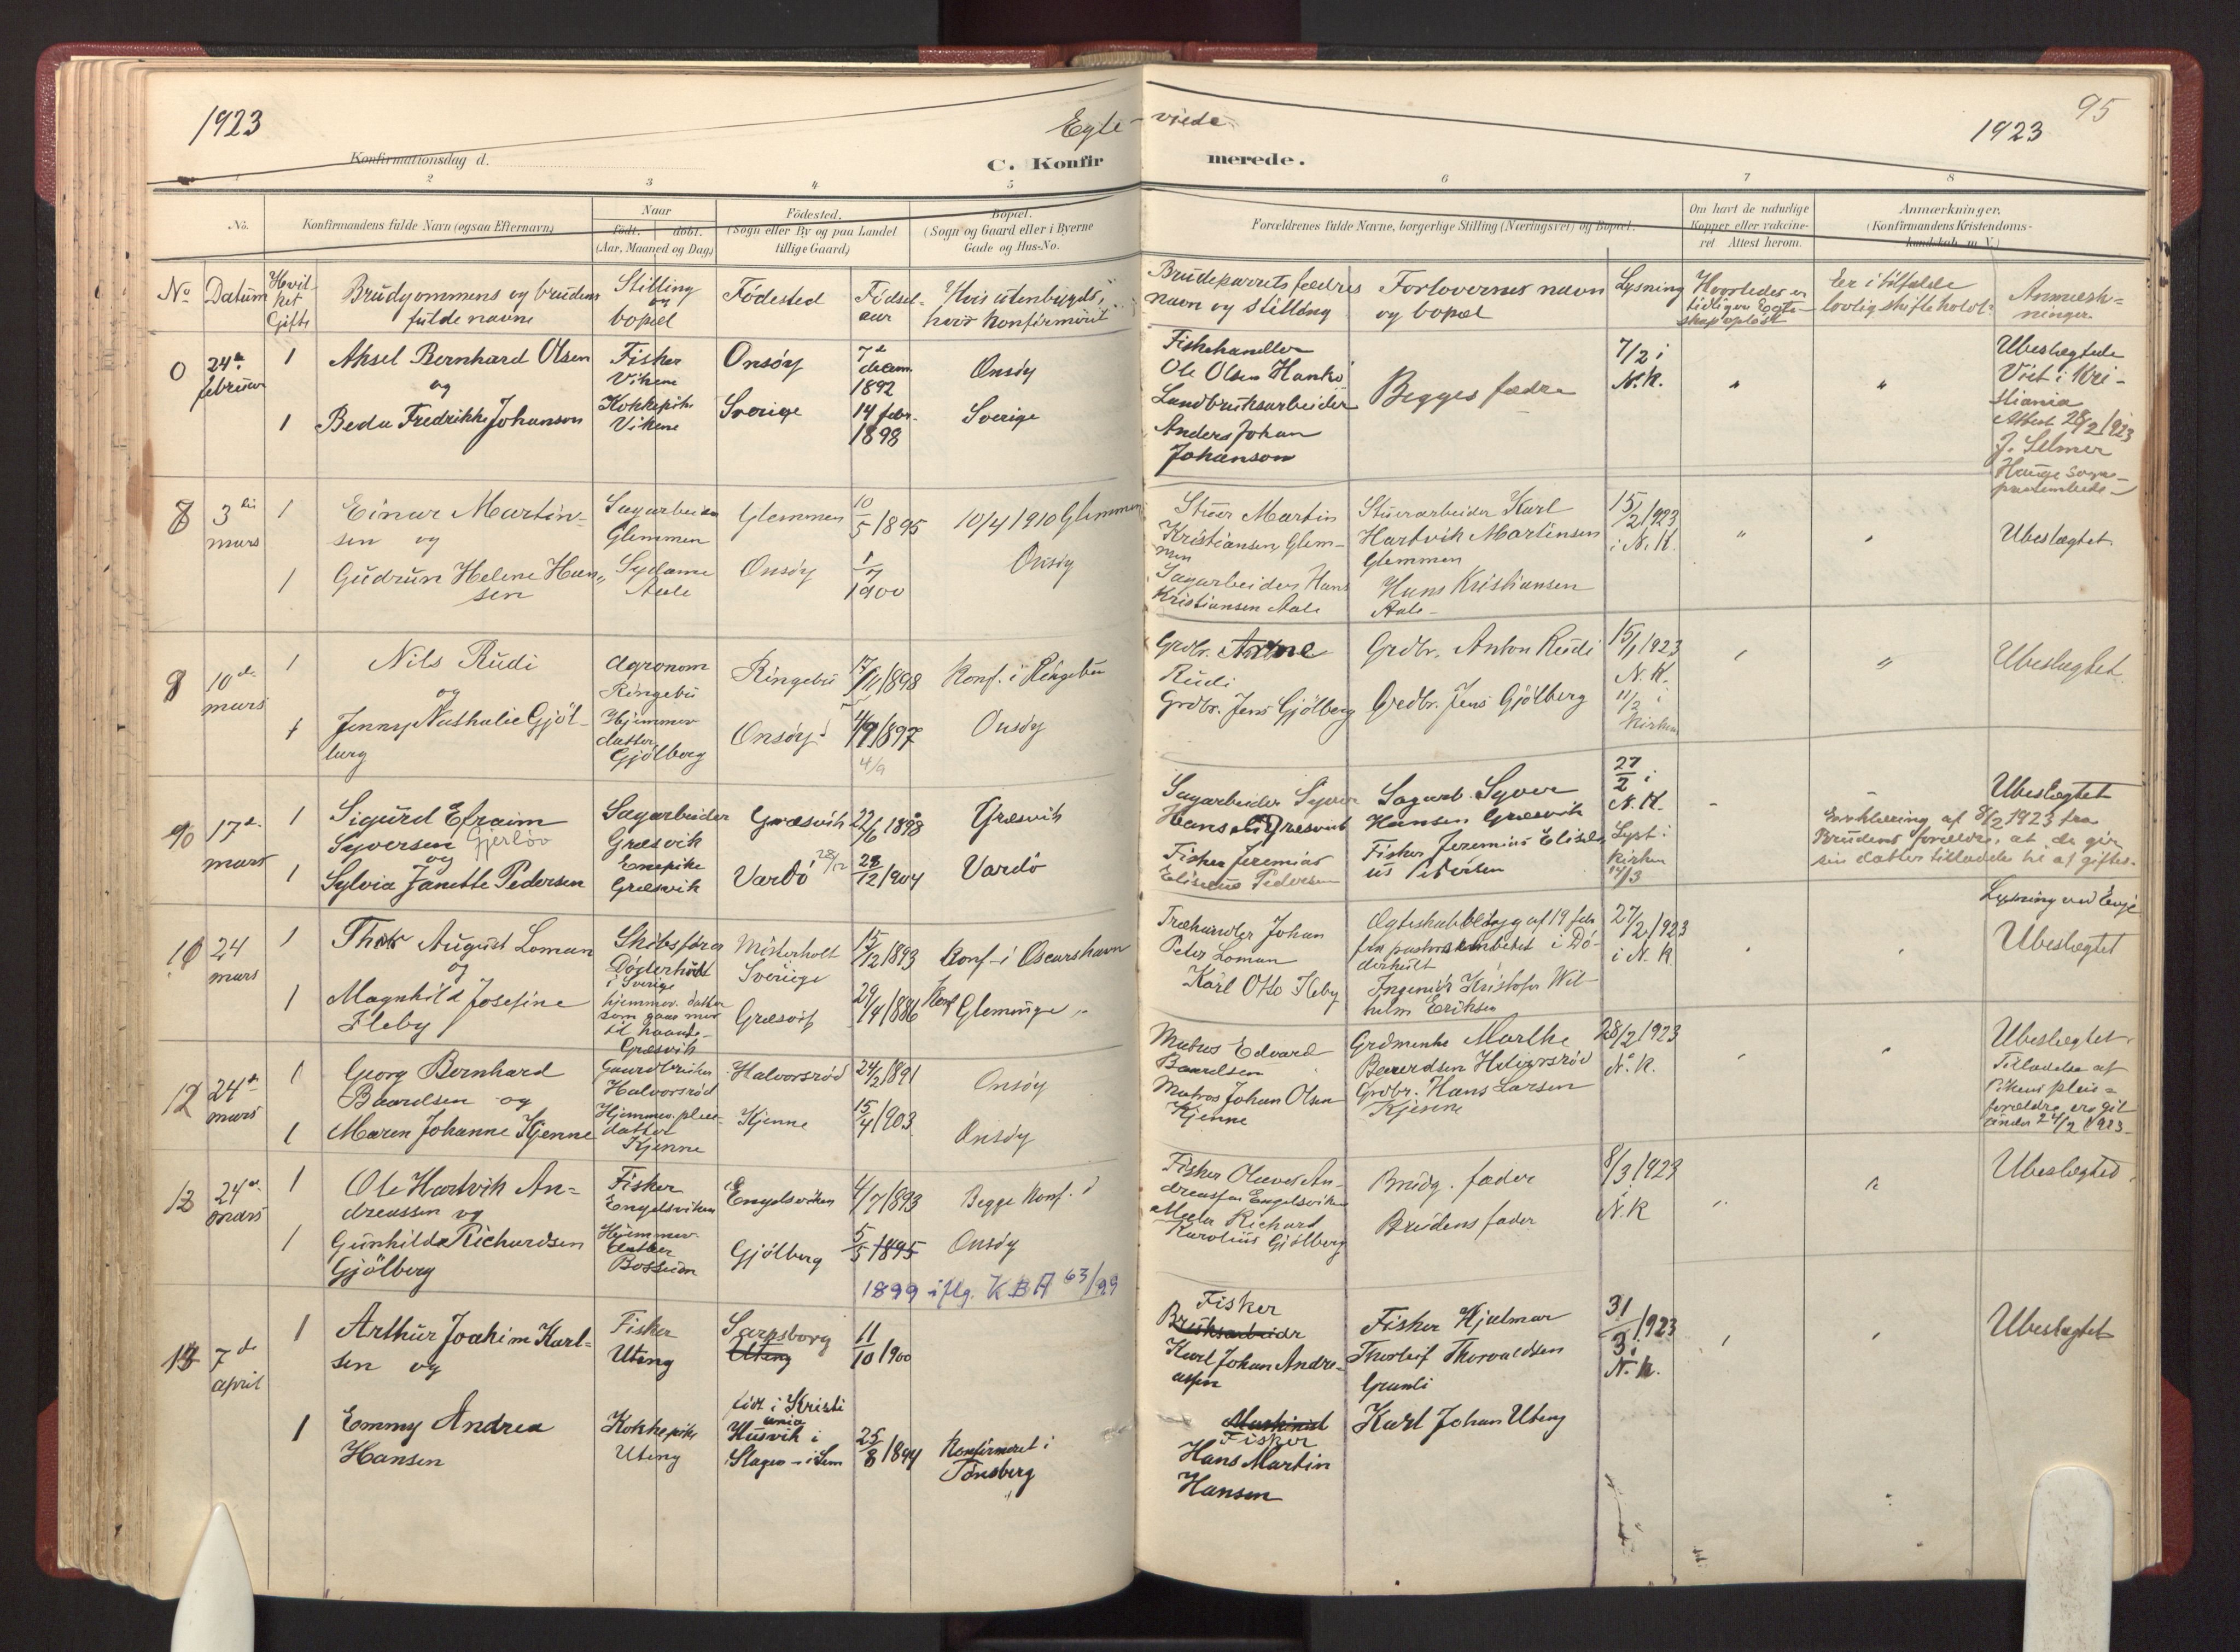 1923
Egte-viede
1923
95
Konfirmationsdag d.
C. Konfirmerede.
1 2 3 4 5 6 7 8
No.
Konfirmandens fulde Navn (ogsaa Efternavn)
Naar
født. døbt.
(Aar, Maaned og Dag)
Fødested.
(Sogn eller By og paa Landet
tillige Gaard)
Bopæl.
(Sogn og Gaard eller i Byerne
Gade og Hus-No.
Forældrenes fulde Navne, borgerlige Stilling (Næringsvei) og Bopæl.
Om havt de naturlige
Kopper eller vakcine-
ret Attest herom.
Anmærkninger.
(Konfirmandens Kristendoms-
kundskab m. V.)
No
Datum
Hvil-
ket
Gifte
Brudgommens og brudens
fulde navne
Stilling
og
bopæl
Fødested
Fødsel-
aar
Hvis utenbygds,
hvor konfirmert
Brudeparrets fædres
navn og stilling
Forlovernes navn
og bopæl
Lysning
Hvorledes er
tidligere Egte-
skap opløst
Er i tilfælde
lovlig skifte holdt
Anmerk-
ninger.
0
24de
februar
1 Aksel Bernhard Olsen
og
1 Beda Fredrikke Johanson
Fisker
Vikene
Kokkepike
Vikene
Onsøy
Sverige
7de
decem.
1892
14 febr.
1898
Onsøy
Sverige
Fiskehandler
Ole Olsen Hankø
Landbruksarbeider
Anders Johan
Johanson
Begges fædre
7/2 i
N.K.
" "
Ubeslegtede
Viet i Kri-
stiania
Attest 28/2 1923
J. Selmer
Hauge sogne-
8
3die
mars
1 Einar Martin-
sen og
1 Gudrun Helene Han-
sen
Sagarbeider
Glemmen
Sydame
Aale
Glemmen
Onsøy
10/5 1895
1/7
1900
10/4 1910 Glemmen
Onsøy
Stuer Martin
Kristiansen, Glem-
men
Sagarbeider Hans
Kristiansen Aale
Stuerarbeider Karl
Hartvik Martinsen
Glemmen
Hans Kristiansen
Aale
15/2 1923
i N.K.
" "
Ubeslegtet
9
10de
mars
1 Nils Rudi
og
1 Jenny Nathalie Gjøl-
berg
Agronom
Ringebu
Hjemmev.
datter
Gjølberg
Ringebu
Onsøy
17/11 1898
4/9 1897
4/9
Konf. i Ringebu
Onsøy
Grdbr. Arne
Rudi
Grdbr. Jens Gjølberg
Grdbr. Anton Rudi
Grdbr. Jens Gjølberg
15/1 1923
N.K.
11/2 i
kirken
" "
Ubeslegtet
10
17de
mars
1 Sigurd Efraim
Syversen Gjerløv
og
1 Sylvia Janette Pedersen
Sagarbeider
Græsvik
Enepike
Græsvik
Græsvik
Vardø 28/12
22/6 1898
28/12 1904
Græsvik
Vardø
Sagarbeider Syver
Hansen Græsvik
Fisker Jeremias
Eliseus Pedersen
Sagarb. Syver
Hansen Græsvik
Fisker Jeremias Elise-
us Pedersen
27/2 i
N.K.
Lyst i
kirken
14/3
Erklæring af 8/2 1923 fra
Brudens forældre, at de gir
sin datter tilladelse til at giftes.
Ubeslegtet
24
mars
1 August Loman
og
1 Magnhild Josefine
Fleby
Skibsfører
i Sverige
hjemmev. datter
som gaar mor
til haande
Græsvik
Misterholt
Sverige
Græsvik
15/12 1893
29/4 1886
Konf. i Oscarshavn
Konf Glemminge
Træhandler Johan
Peter Loman
Karl Otto Fleby
af 19 febr
fra pastorsembetet i Dö-
derhult
Ingeniør Kristofer Wil-
helm Eriksen
27/2 1923
i N.K.
Lysning ved
Ubeslegtet
12
24de
mars
1 Georg Bernhard
Baardsen og
1 Maren Johanne Kjenne
Gaardbruker
Halvorsrød
Hjemmev. pleie-
datter
Kjenne
Halvorsrød
Kjenne
24/2 1891
15/4 1903
Onsøy
Onsøy
Matros Edvard
Baardsen
Matros Johan Olsen
Kjenne
Grdmenke Marthe
Baardsen Halvorsrød
Grdbr. Hans Larsen
Kjenne
28/2 1923
N.K.
Ubeslegtet.
Tilladelse af
Pikens pleie-
forældre er git
under 24/2 1923
13
24de
mars
1 Ole Hartvik An-
dreassen og
1 Gunhilda Richardsen
Gjølberg
Fisker
Engelsviken
Hjemmev.
datter
Engelsviken
Gjølberg
4/7 1893
5/5 1895
1899 iflg. KBA 63/99
Begge konf. i
Onsøy
Fisker Oluves An-
dreassen Engelsviken
Maler Richard
Karolius Gjølberg
Brudg. fader
Brudens fader
8/3 1923
N.K
" "
Ubeslegted
7de
april
1 Arthur Joakim Karl-
sen og
1 Emmy Andrea
Hansen
Fisker
Uteng
Kokkepike
Uteng
Sarpsborg
Uteng
født i Kristi
ania
Husvik i
Slagen i Sem
11/10 1900
25/8 1894
Konfirmeret i
Tønsberg
Fisker
Bruksarbeider
Karl Johan Andre-
assen
Maskinist
Fisker
Hans Martin
Hansen
Fisker Hjalmar
Thorleif Thorvaldsen
Granli
Karl Johan Uteng
31/3 1923
i
N.K.
" "
Ubeslegtet